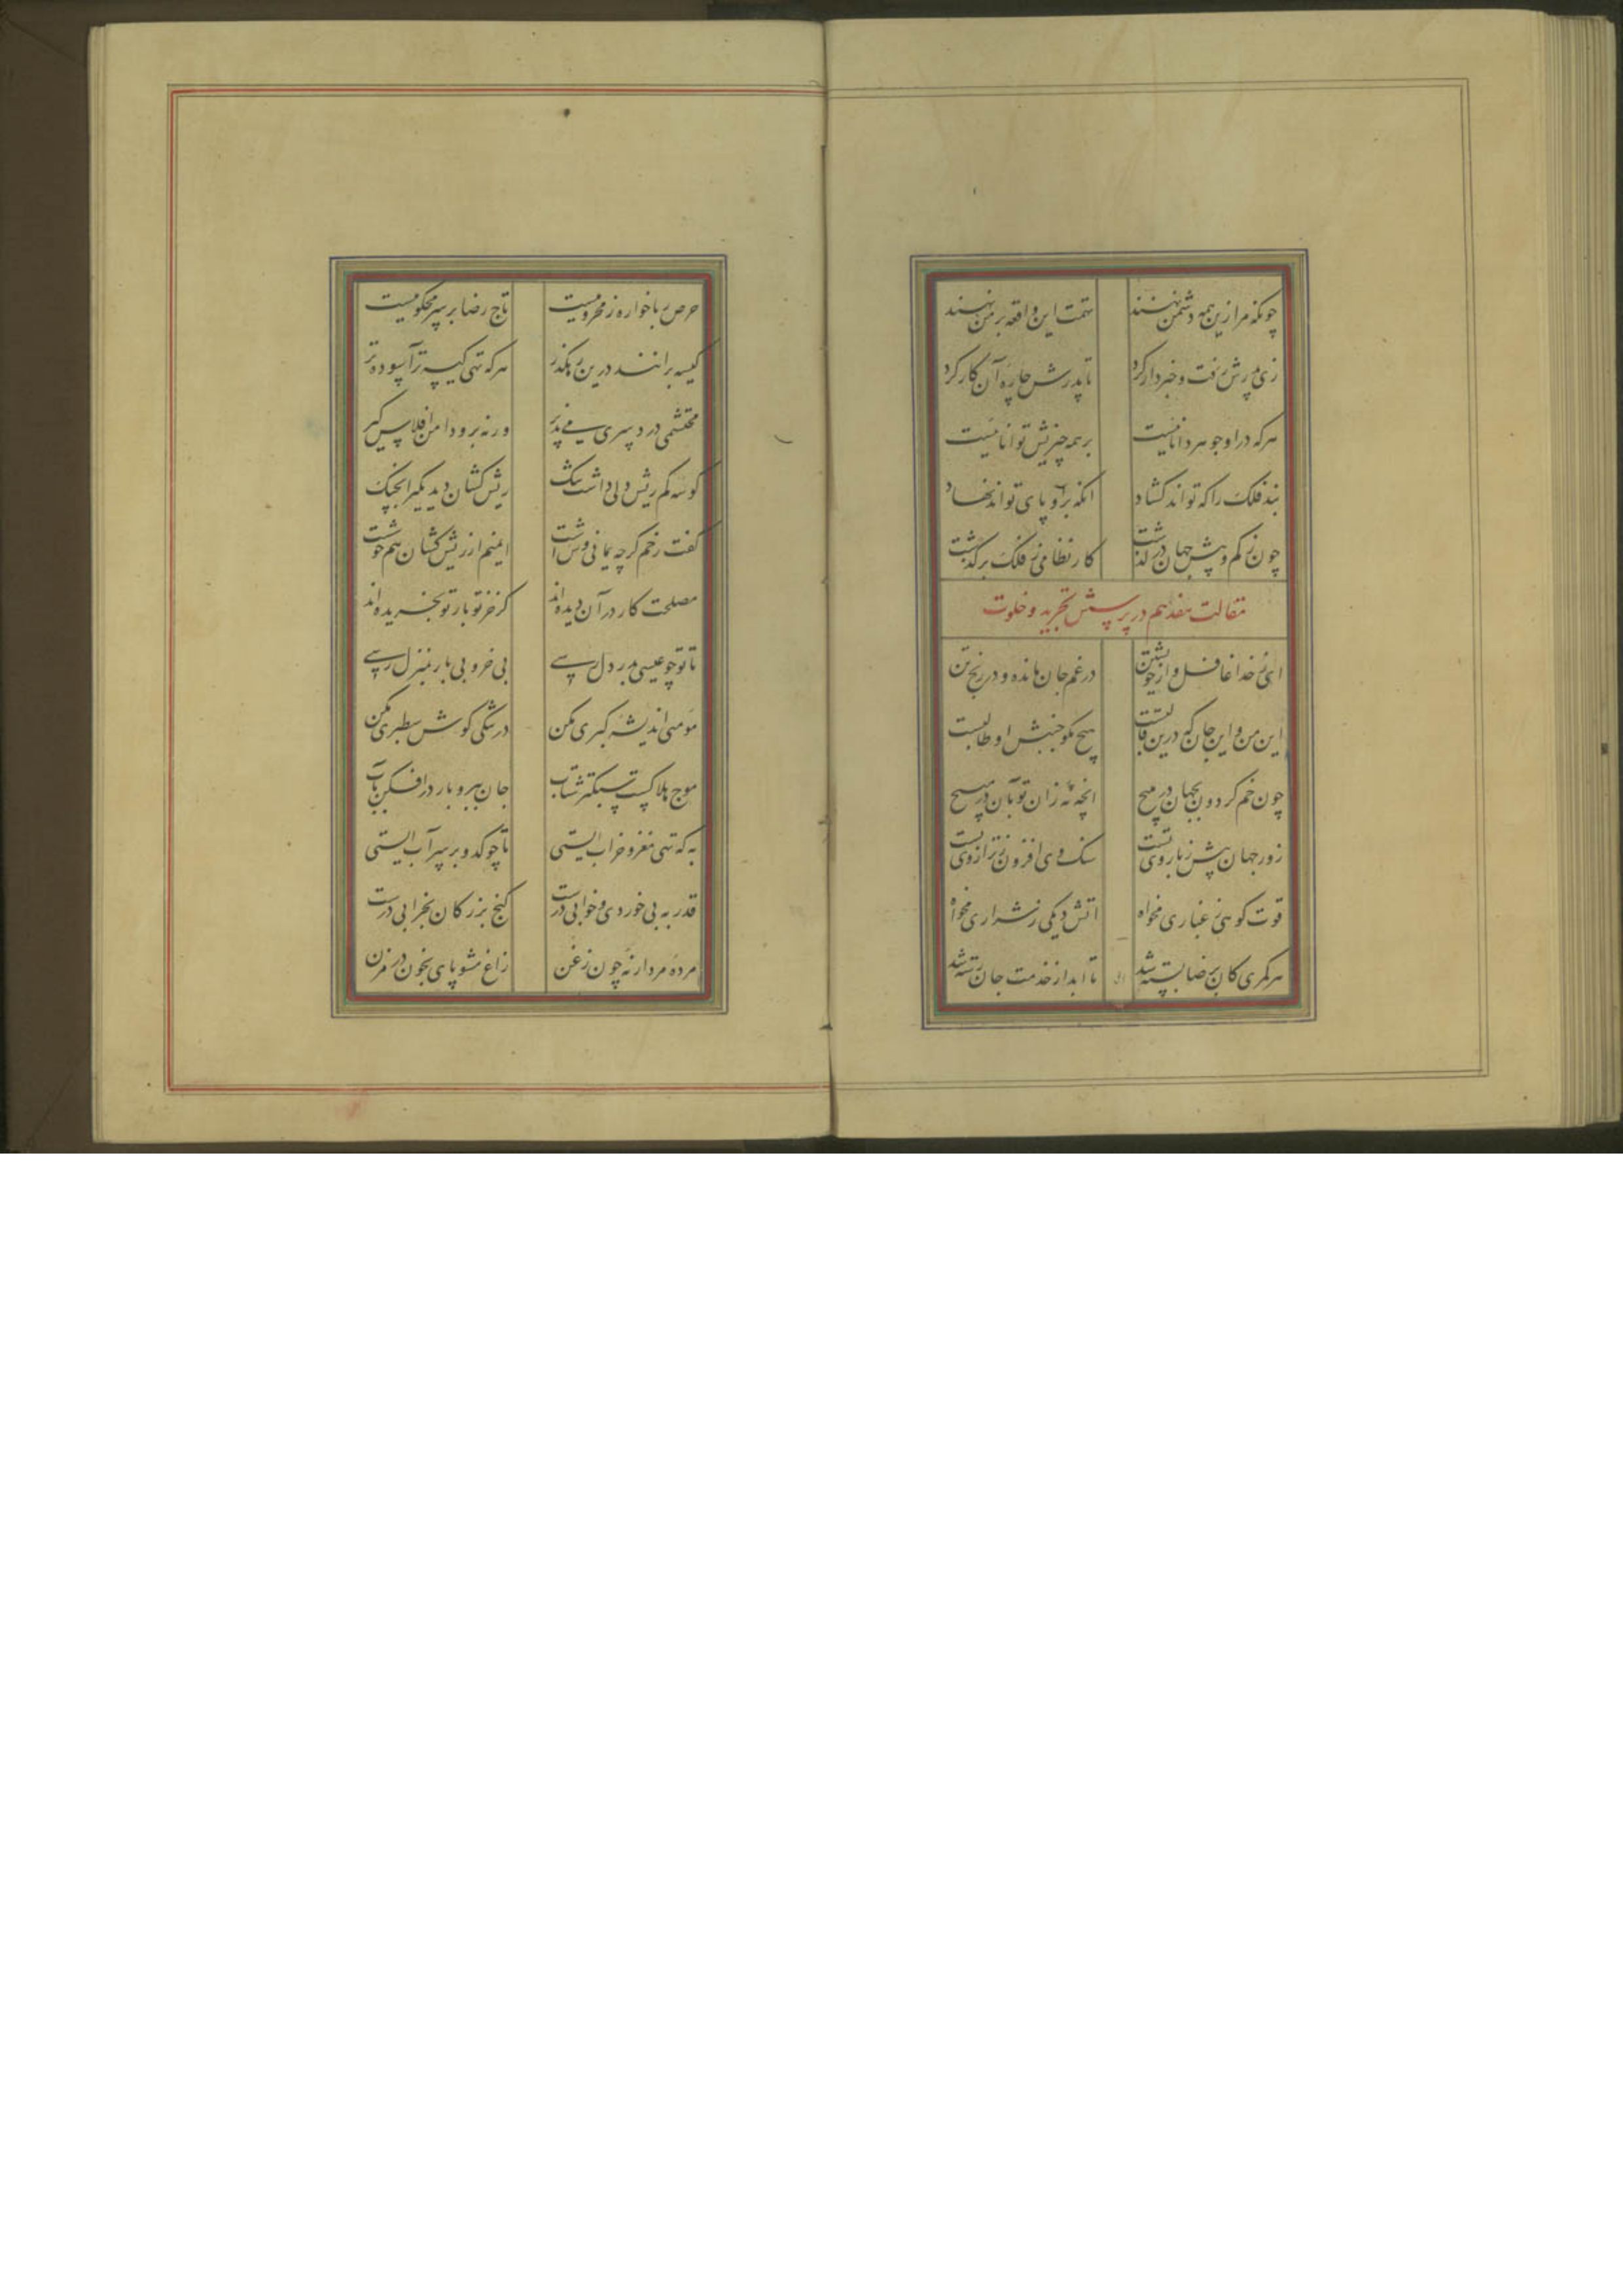 چونکه مرا زین همه دشمن نهند تهمت این واقعه بر من نهند
زی پدرش رفت و خبردار کرد تا پدرش چاره آن کار کرد
هرکه درو جوهر دانائیست بر همه چیزیش توانائیست
بند فلک را که تواند کشاد انکه برو پای تواند نهاد
چون ز کم و بیش جهان درگذشت کار نظامی ز فلک برگذشت
مقالت هفدهم در پرسش تجرید و خلوت
ای ز خدا غافل و از خویشتن در غم جان مانده و در رنج تن
این من و این جان که درین قالبست هیچ مگو جنبش او طالبست
چون خم گردون بجهان در مپیچ انچه نه زان تو بآن در مپیچ
زور جهان بیش ز بازوی تست سنگ وی افزون ز ترازوی تست
قوت کوهی ز غباری مخواه اتش دیگی ز شراری مخواه
هر کمری کان برضا بسته شد تا ابد از خدمت جان رسته شد
حرص رباخواره ز محرومیست تاج رضا بر سر محکومیست
کیسه برانند درین رهگذر هرکه تهی کیسه تر آسوده تر
محتشمی درد سری می پذیر ورنه برو دامن افلاس گیر
کوسه کم ریش دلی داشت تنگ ریش کشان دید دو کس را بجنگ
گفت رخم گرچه زبانی وشست ایمنم از ریش کشان هم خوشست
مصلحت کار در آن دیده اند کز خر تو بار تو بخریده اند
تا تو چو عیسی بدر دل رسی بی خر و بی بار بمنزل رسی
مومنی اندیشه گبری مکن در تنکی کوش سطبری مکن
موج هلاکست سبکتر شتاب جان ببر و بار درافکن بآب
به که تهی مغز و خراب ایستی تا چو کدو بر سر آب ایستی
قدر به بی خوردی و خوابی درست گنج بزرگان بخرابی درست
مرده مردار نه چون زغن زاغ مشو پای بخون در مزن